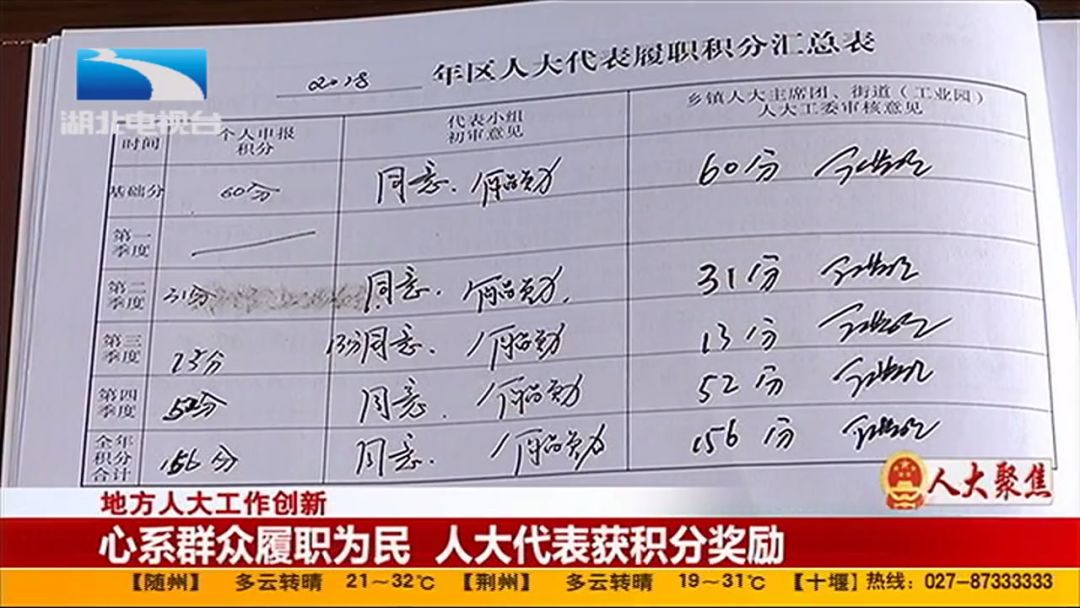 湖北电视台
2018 年区人大代表履职积分汇总表
时间 个人申报积分 代表小组初审意见 乡镇人大主席团、街道（工业园）人大工委审核意见
基础分 60分 同意. 60分
第一季度
第二季度 31分 同意. 31分
第三季度 13分 13分同意. 13分
第四季度 52分 同意. 52分
全年积分合计 156分 同意. 156分
人大聚焦
地方人大工作创新
心系群众履职为民 人大代表获积分奖励
【随州】 多云转晴 21～32℃ 【荆州】 多云转晴 19～31℃ 【十堰】 热线：027-87333333